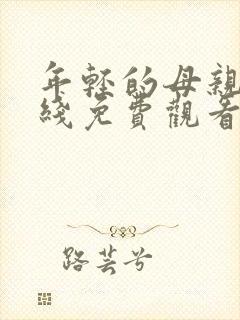 年輕的母親
綫免費觀看
路芸兮